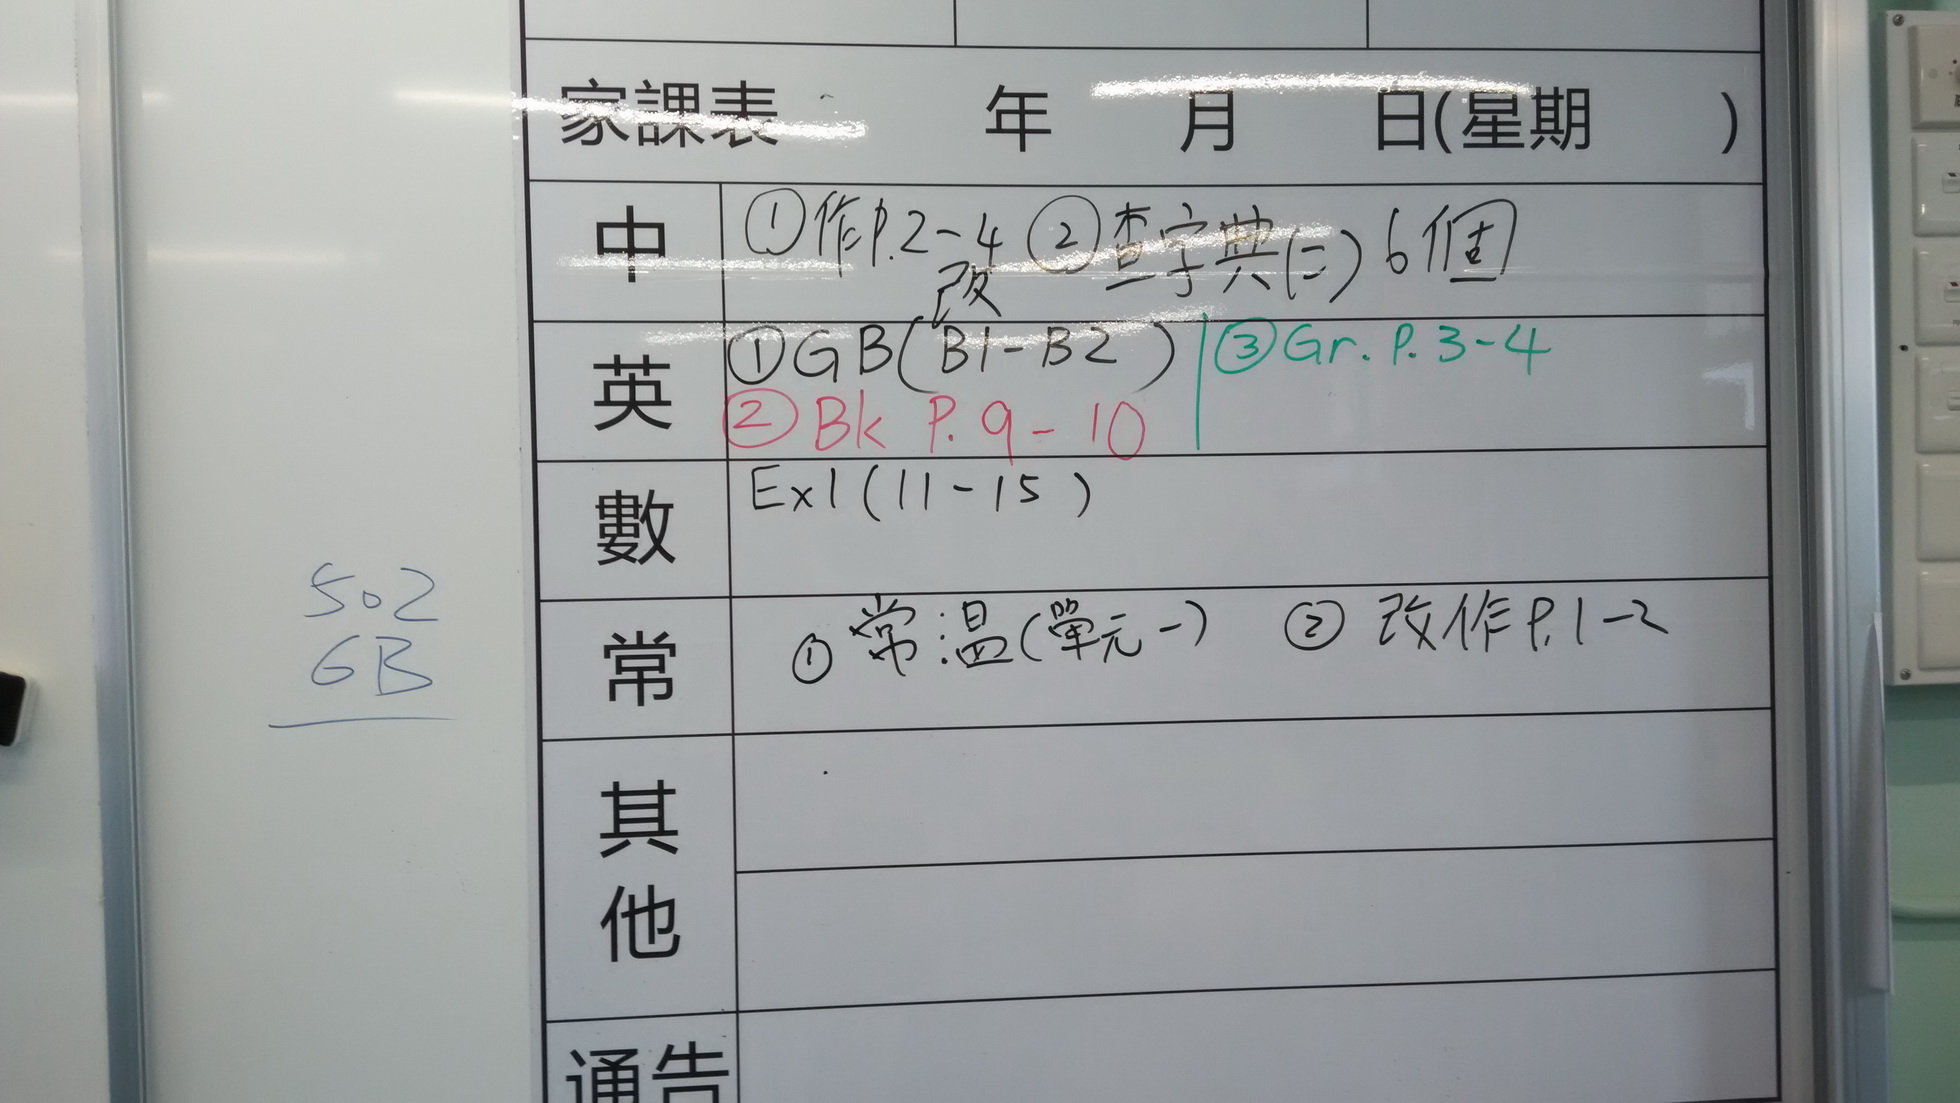 家課表 年 月 日(星期 )
中 ①作P.2-4 ②查字典(二)6個
改
英 ①GB(B1-B2 ) ③Gr. P. 3-4
②Bk P. 9-10
數 Ex1(11-15 )
502
GB
常 ①常温(單元一) ②改作P.1-2
其他
通告